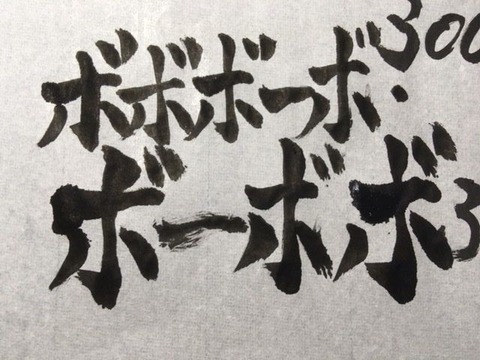 ボボボーボ・ 300
ボーボボ 3